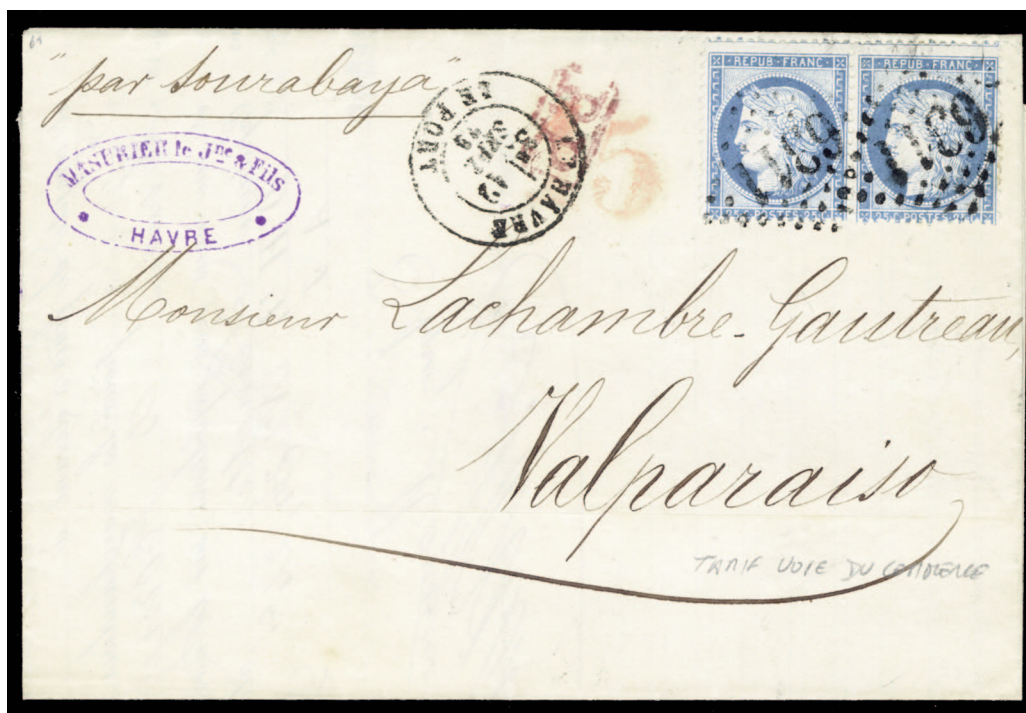 "par Sourabaya"
MASURIER le Jne & Fils
HAVRE
LE HAVRE
LE PORT
5
REPUB · FRANC ·
25c POSTES 25c
REPUB · FRANC ·
25c POSTES 25c
1769
1769
Monsieur Lachambre-Gautreau,
Valparaiso
TARIF VOIE DU COMMERCE